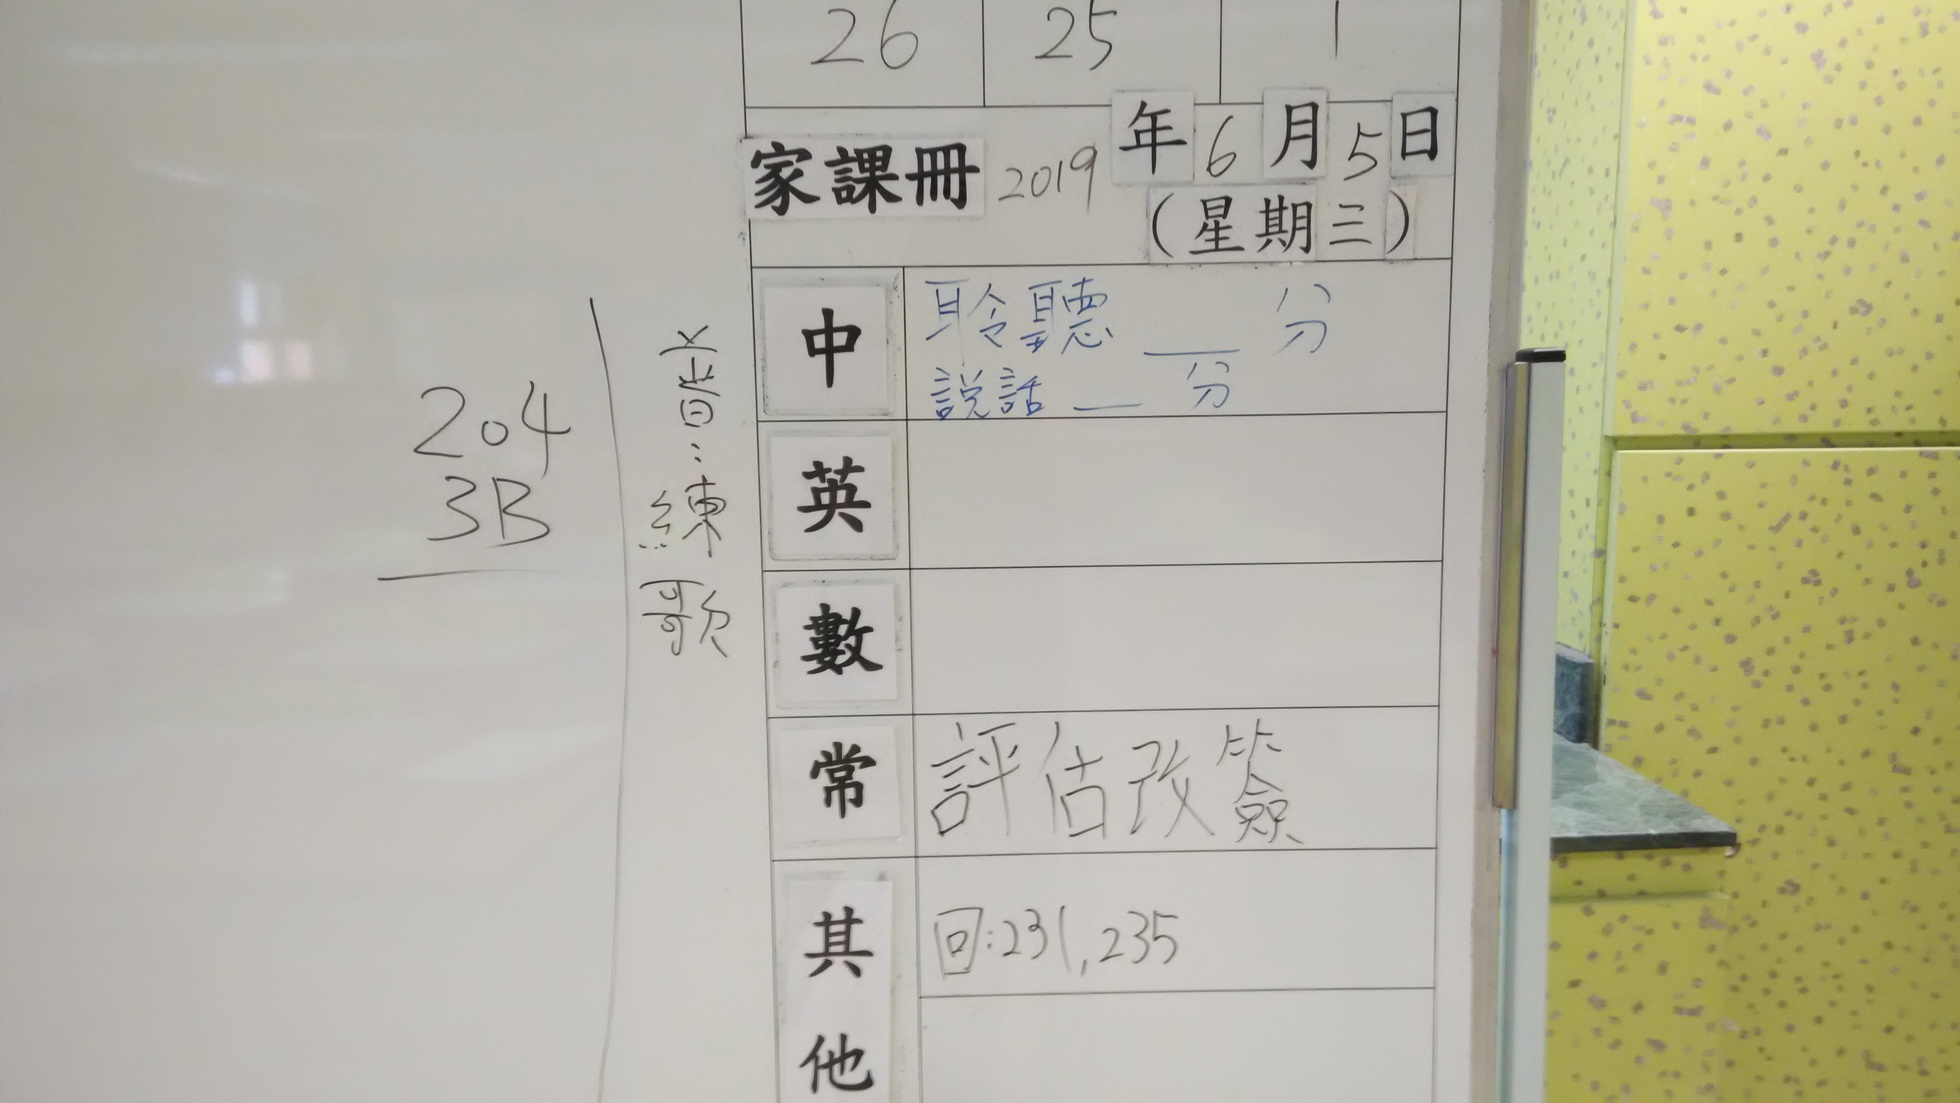 26 25 1
家課冊 2019 年 6 月 5 日
(星期三)
中 聆聽 __ 分
説話 __ 分
英
數
常 評估改簽
其他 回:231,235
204
3B
音:練歌